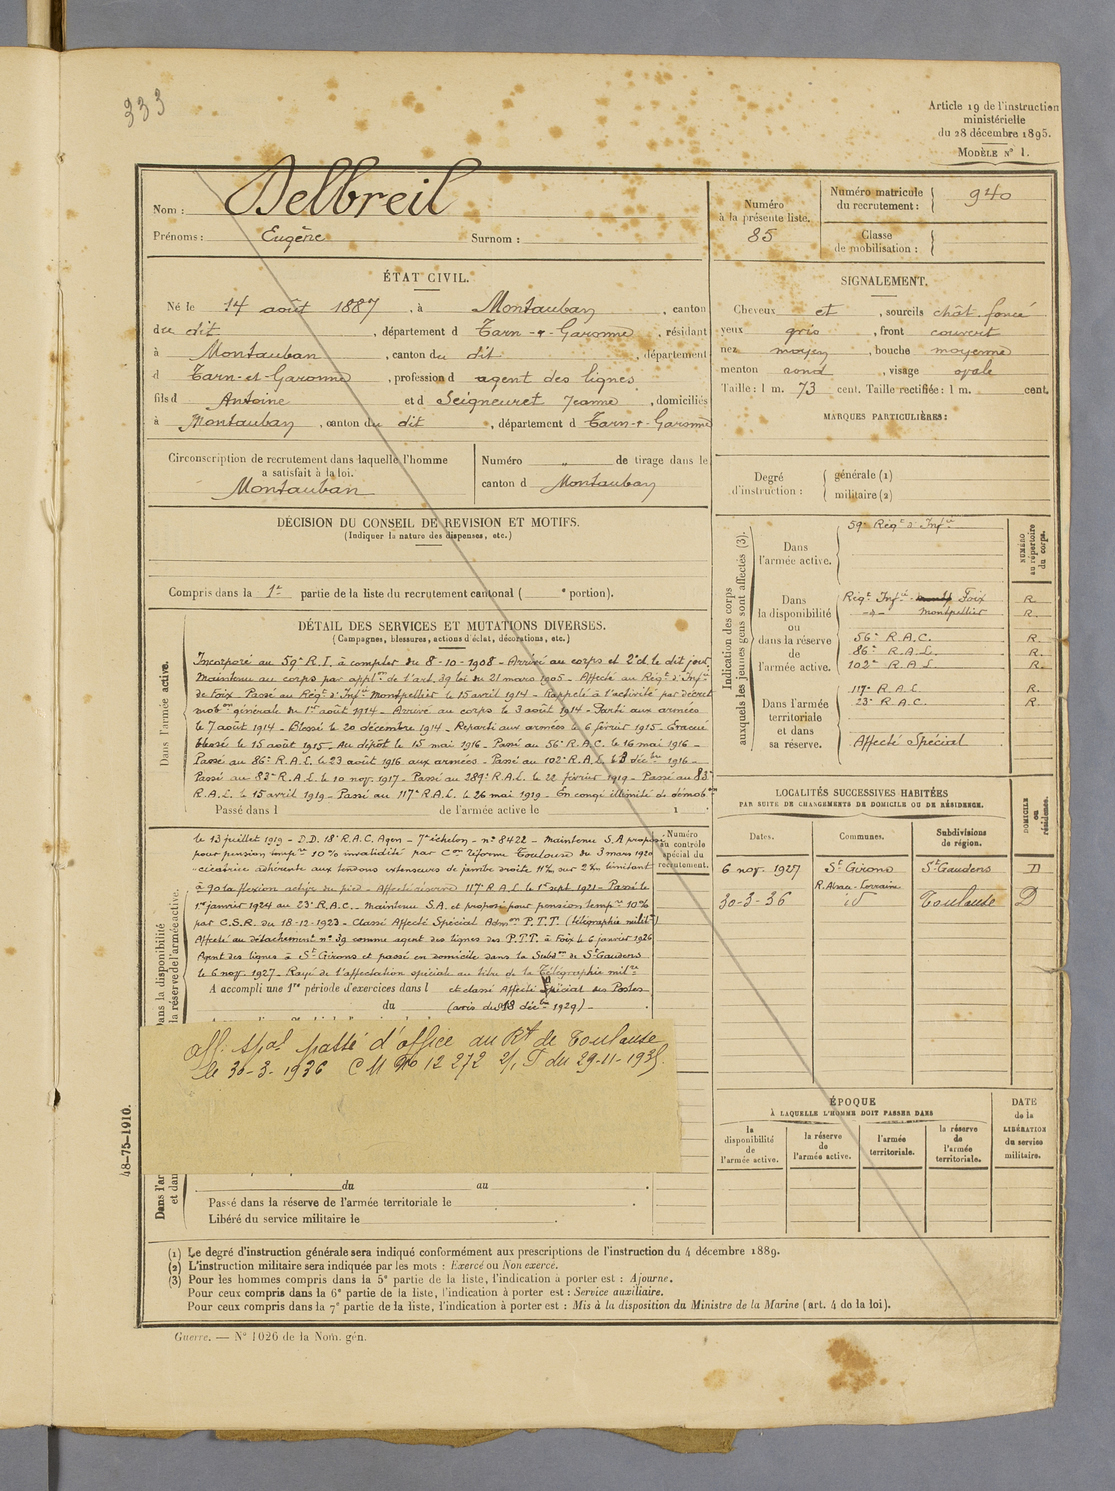 333
Article 19 de l'instruction
ministérielle
du 28 décembre 1895.
MODÈLE N° 1.
Nom : Delbreil
Prénoms : Eugène Surnom :
Numéro
à la présente liste.
85
Numéro matricule
du recrutement : 940
Classe
de mobilisation :
ÉTAT CIVIL.
Né le 14 août 1887, à Montauban, canton
du dit, département d Tarn-&-Garonne, résidant
à Montauban, canton du dit, département
d Tarn-et-Garonne, profession d agent des lignes
fils d Antoine et d Seigneuret Jeanne, domiciliés
à Montauban, canton du dit, département d Tarn-&-Garonne
SIGNALEMENT.
Cheveux et, sourcils chât. foncé
yeux gris, front couvert
nez moyen, bouche moyenne
menton rond, visage ovale
Taille : 1 m. 73 cent. Taille rectifiée : 1 m. cent.
MARQUES PARTICULIÈRES :
Circonscription de recrutement dans laquelle l'homme
a satisfait à la loi.
Montauban
Numéro " de tirage dans le
canton d Montauban
Degré
d'instruction :
générale (1)
militaire (2)
DÉCISION DU CONSEIL DE REVISION ET MOTIFS.
(Indiquer la nature des dispenses, etc.)
Compris dans la 1re partie de la liste du recrutement cantonal ( e portion).
Indication des corps
auxquels les jeunes gens sont affectés (3).
NUMÉRO
au répertoire
du corps.
Dans
l'armée active.
59e Régt d'Infie
Dans
la disponibilité
ou
dans la réserve
de
l'armée active.
Régt Infie Foix R.
-"- Montpellier R.
56e R.A.C. R.
86e R.A.L. R.
102e R.A.L. R.
Dans l'armée
territoriale
et dans
sa réserve.
117e R.A.L. R.
23e R.A.C. R.
Affecté Spécial
DÉTAIL DES SERVICES ET MUTATIONS DIVERSES.
(Campagnes, blessures, actions d'éclat, décorations, etc.)
Dans l'armée active.
Incorporé au 59e R.I. à compter du 8-10-1908 - Arrivé au corps et 2e cl. le dit jour.
Maintenu au corps par applon de l'art. 39 loi du 21 mars 1905 - Affecté au Régt d'Infie
de Foix. Passé au Régt d'Infie Montpellier le 15 avril 1914 - Rappelé à l'activité par décret
mobon générale du 1er août 1914 - Arrivé au corps le 3 août 1914 - Parti aux armées
le 7 août 1914 - Blessé le 20 décembre 1914 - Reparti aux armées le 6 février 1915 - Évacué
blessé le 15 août 1915 - Au dépôt le 15 mai 1916 - Passé au 56e R.A.C. le 16 mai 1916 -
Passé au 86e R.A.L. le 23 août 1916 aux armées - Passé au 102e R.A.L. le décbre 1916 -
Passé au 82e R.A.L. le 10 nov. 1917 - Passé au 289e R.A.L. le 22 février 1919 - Passé au 83e
R.A.L. le 15 avril 1919 - Passé au 117e R.A.L. le 26 mai 1919 - En congé illimité de démobon
Passé dans l de l'armée active le 1
Dans la disponibilité
la réserve de l'armée active.
le 13 juillet 1919 - D.D. 18e R.A.C. Agen - 7e échelon - n° 8422 - Maintenu S.A. proposé
pour pension tempre 10% invalidité par Con réforme Toulouse du 3 mars 1920
"cicatrice adhérente aux tendons extenseurs de jambe droite 11% sur 2% limitant
à 90 la flexion active du pied - Affecté réserve 117e R.A.L. le 1er sept 1921 - Passé le
1er janvier 1924 au 23e R.A.C. - Maintenu S.A. et proposé pour pension tempre 10%
par C.S.R. du 18-12-1923 - Classé Affecté Spécial Admon P.T.T. (télégraphie milite)
Affecté au détachement n° 39 comme agent des lignes des P.T.T. à Foix le 6 janvier 1926
Agent des lignes à St Girons et passé en domicile dans la Subdon de St Gaudens
le 6 nov. 1927 - Rayé de l'affectation spéciale au titre de la Télégraphie milre
A accompli une 1re période d'exercices dans l et classé Affecté Spécial des Postes
du (avis du 18 décbre 1929) -
Numéro
au contrôle
spécial du
recrutement.
Aff. Spal passé d'office au Rt de Toulouse
le 30-3-1936 C M No 12 272 2/, T du 29-11-1935.
LOCALITÉS SUCCESSIVES HABITÉES
PAR SUITE DE CHANGEMENTS DE DOMICILE OU DE RÉSIDENCE.
DOMICILE
ou
résidence.
Dates. Communes. Subdivisions
de région.
6 nov. 1927 St Girons St Gaudens D
R. Alsace-Lorraine
30-3-36 id Toulouse D
ÉPOQUE
À LAQUELLE L'HOMME DOIT PASSER DANS
la
disponibilité
de
l'armée active.
la réserve
de
l'armée active.
l'armée
territoriale.
la réserve
de
l'armée
territoriale.
DATE
de la
LIBÉRATION
du service
militaire.
48-75-1910.
Dans l'ar
et dan
du au
Passé dans la réserve de l'armée territoriale le
Libéré du service militaire le
(1) Le degré d'instruction générale sera indiqué conformément aux prescriptions de l'instruction du 4 décembre 1889.
(2) L'instruction militaire sera indiquée par les mots : Exercé ou Non exercé.
(3) Pour les hommes compris dans la 5e partie de la liste, l'indication à porter est : Ajourné.
Pour ceux compris dans la 6e partie de la liste, l'indication à porter est : Service auxiliaire.
Pour ceux compris dans la 7e partie de la liste, l'indication à porter est : Mis à la disposition du Ministre de la Marine (art. 4 de la loi).
Guerre. — N° 1026 de la Nom. gén.